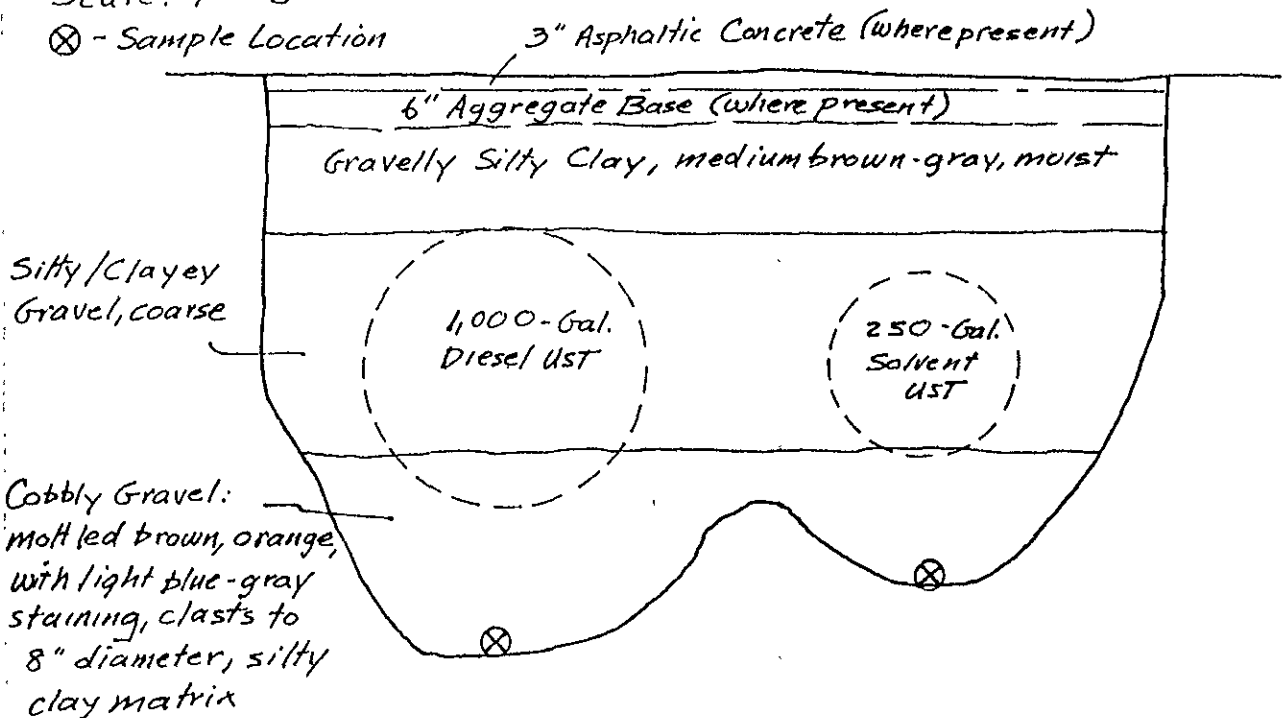 ⊗ - Sample Location
3" Asphaltic Concrete (where present)
6" Aggregate Base (where present)
Gravelly Silty Clay, medium brown-gray, moist
Silty/Clayey
Gravel, coarse
1,000-Gal.
Diesel UST
250-Gal.
Solvent
UST
Cobbly Gravel:
mottled brown, orange,
with light blue-gray
staining, clasts to
8" diameter, silty
clay matrix